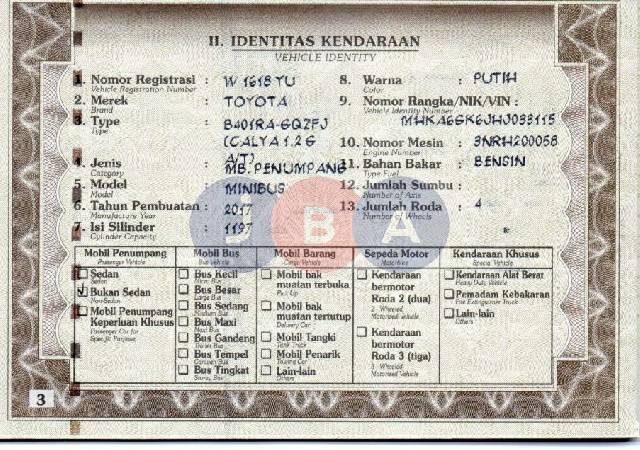 II. IDENTITAS KENDARAAN
VEHICLE IDENTITY
1. Nomor Registrasi : W 1618 YU
Vehicle Registration Number
2. Merek : TOYOTA
Brand
3. Type : B401RA-GQZFJ
Type
(CALYA 1.2 G
A/T)
4. Jenis : MB. PENUMPANG
Category
5. Model : MINIBUS
Model
6. Tahun Pembuatan : 2017
Manufacture Year
7. Isi Silinder : 1197
Cylinder Capacity
8. Warna : PUTIH
Color
9. Nomor Rangka/NIK/VIN :
Vehicle Identity Number
MHKA6GK6JHJ033115
10. Nomor Mesin : 3NRH200058
Engine Number
11. Bahan Bakar : BENSIN
Type Fuel
12. Jumlah Sumbu :
Number of Axle
13. Jumlah Roda : 4
Number of Wheels
JBA
Mobil Penumpang
Passenger Vehicle
Sedan
Sedan
Bukan Sedan
Non-Sedan
Mobil Penumpang
Keperluan Khusus
Passenger Car for
Specific Purpose
Mobil Bus
Bus Vehicle
Bus Kecil
Bus Besar
Large Bus
Bus Sedang
Medium Bus
Bus Maxi
Bus Gandeng
Bus Tempel
Bus Tingkat
Mobil Barang
Cargo Vehicle
Mobil bak
muatan terbuka
Pick Up
Mobil bak
muatan tertutup
Delivery Car
Mobil Tangki
Tank Truck
Mobil Penarik
Towing Car
Lain-lain
Others
Sepeda Motor
Motorbike
Kendaraan
bermotor
Roda 2 (dua)
2 - Wheeled
Motorized Vehicle
Kendaraan
bermotor
Roda 3 (tiga)
3 - Wheeled
Motorized Vehicle
Kendaraan Khusus
Special Vehicle
Kendaraan Alat Berat
Heavy Duty Vehicle
Pemadam Kebakaran
Fire Extinguisher Truck
Lain-lain
Others
3